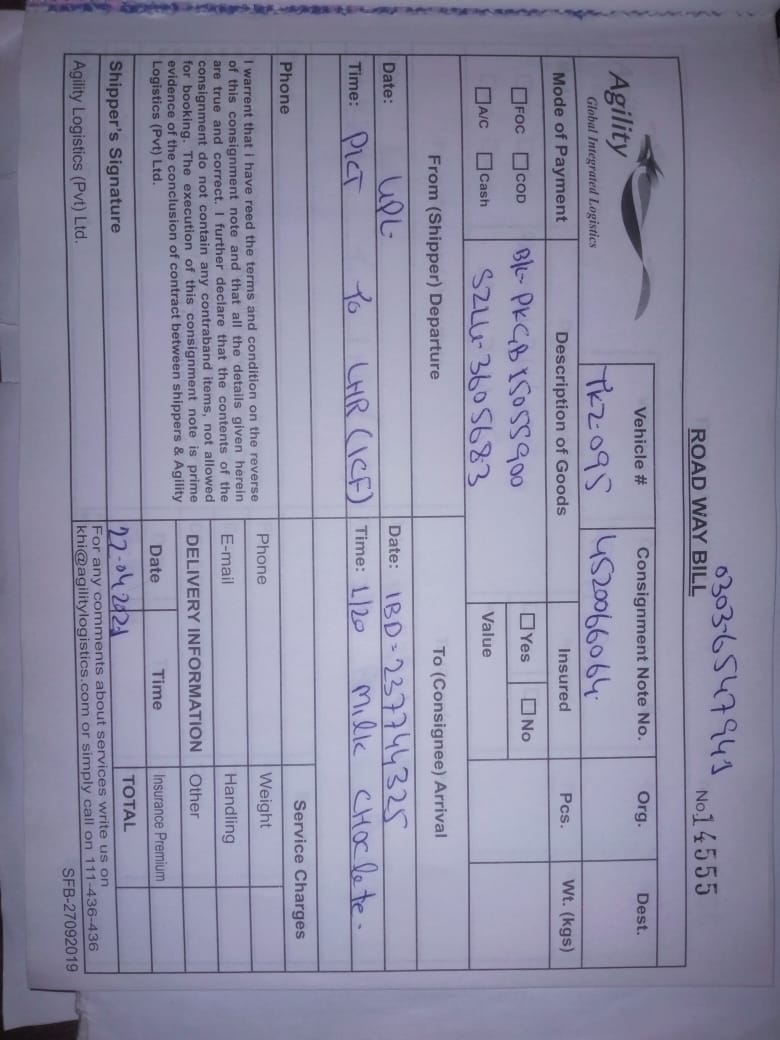 0303-6547941
ROAD WAY BILL
No.14555
Agility
Global Integrated Logistics
Vehicle #
Consignment Note No.
Org.
Dest.
TKZ-095
4520066064.
Mode of Payment
Description of Goods
Insured
Pcs.
Wt. (kgs)
FOC COD
B/L- PKGBX5055900
Yes
No
A/C Cash
SZLU-3605683
Value
From (Shipper) Departure
To (Consignee) Arrival
Date: UPL
Date: IBD-237744325
Time: PICT To LHR (ICF)
Time: 1/20 Milk CHoclete.
Service Charges
Phone
Phone
Weight
I warrent that i have reed the terms and condition on the reverse
of this consignment note and that all the details given herein
are true and correct. I further declare that the contents of the
consignment do not contain any contraband items, not allowed
for booking. The execution of this consignment note is prime
evidence of the conclusion of contract between shippers & Agility
Logistics (Pvt) Ltd.
E-mail
Handling
DELIVERY INFORMATION
Other
Date
Time
Insurance Premium
22-04 2021
TOTAL
Shipper's Signature
Agility Logistics (Pvt) Ltd.
For any comments about services write us on
khi@agilitylogistics.com or simply call on 111-436-436
SFB-27092019